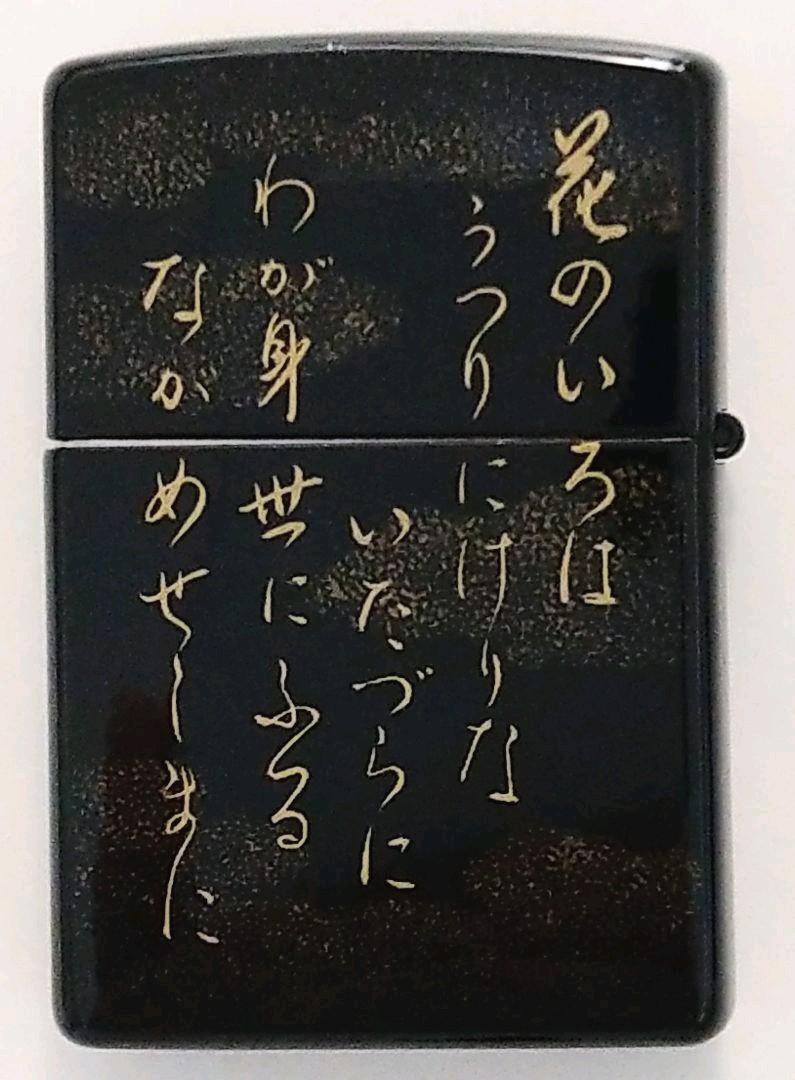 花のいろは
うつりにけりな
いたづらに
わが身世にふる
ながめせしまに